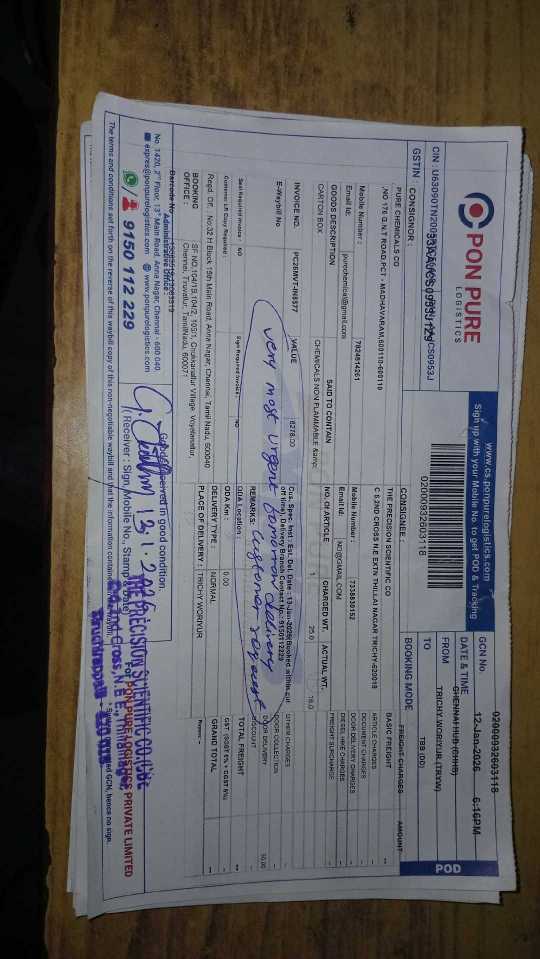 PON PURE
LOGISTICS
www.cs.ponpurelogistics.com
Sign up with your Mobile No. to get POD & Tracking
02000932603118
GCN No. 02000932603118
DATE & TIME 12-Jan-2026 6:16PM
FROM CHENNAI HUB
TO TRICHY WORIYUR (TRYW)
BOOKING MODE TBB (DD)
POD
GSTIN
CONSIGNOR :
PURE CHEMICALS CO
,NO 176 G.N.T ROAD,PCT - MADHAVARAM,600110-600110
Mobile Number : 7824814261
Email Id: purchemical@gmail.com
CONSIGNEE :
THE PRECISION SCIENTIFIC CO
C 5 2ND CROSS N.E EXTN THILLAI NAGAR TRICHY-620018
Mobile Number : 7338830152
Email Id: NO@GMAIL.COM
GOODS DESCRIPTION SAID TO CONTAIN NO. OF ARTICLE CHARGED WT. ACTUAL WT.
CARTON BOX CHEMICALS NON FLAMMABLE &amp; 1 25.0 16.0
INVOICE NO. PC26MVT-IN6377 VALUE 8278.00
E-Waybill No
Cus. Spec. Inst : Est. Del Date : 13-Jan-2026(Booked within cut
off time), Delivery Branch Contact No.: 9150112229
very most urgent tomorrow delivery
REMARKS: Customer request
FREIGHT CHARGES AMOUNT
BASIC FREIGHT
ARTICLE CHARGES
DOCUMENT CHARGES
DOOR DELIVERY CHARGES
DIESEL HIKE CHARGES
FREIGHT SURCHARGE
OTHER CHARGES
DOOR COLLECTION
DOOR DELIVERY 50.00
DISCOUNT
TOTAL FREIGHT
GST (SGST 6% + CGST 6%)
GRAND TOTAL
Seal Required Invoice : NO
Sign Required Invoice : NO
Customer LR Copy Required :
ODA Location :
ODA Km : 0.00
Regd. Of : No.32 H Block, 15th Main Road, Anna Nagar, Chennai, Tamil Nadu, 600040
DELIVERY TYPE : NORMAL
BOOKING OFFICE :
Chennai, Tiruvallur, TamilNadu, 600071
PLACE OF DELIVERY : TRICHY WORIYUR
Administrative Office :
No. 1420, 2nd Floor, 13th Main Road, Anna Nagar, Chennai - 600 040.
expres@ponpurelogistics.com www.ponpurelogistics.com
9150 112 229
Goods received in good condition.
13.1.2026
(Receiver : Sign, Mobile No., Stamp & Date)
THE PRECISION SCIENTIFIC CO
2nd Cross, N.E.E., Thillainagar,
Tiruchirappalli
For PON PURE LOGISTICS PRIVATE LIMITED
GCN, hence no sign.
The terms and conditions set forth on the reverse of this waybill copy of this non-negotiable waybill and that the information contained